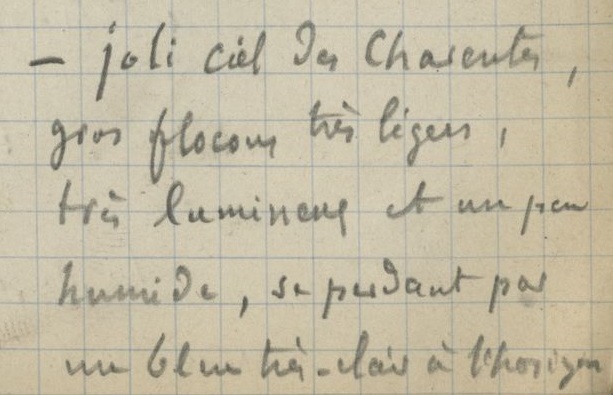 — joli ciel des Charentes,
gros flocons très légers,
très lumineux et un peu
humide, se perdant par
un bleu très-clair à l'horizon